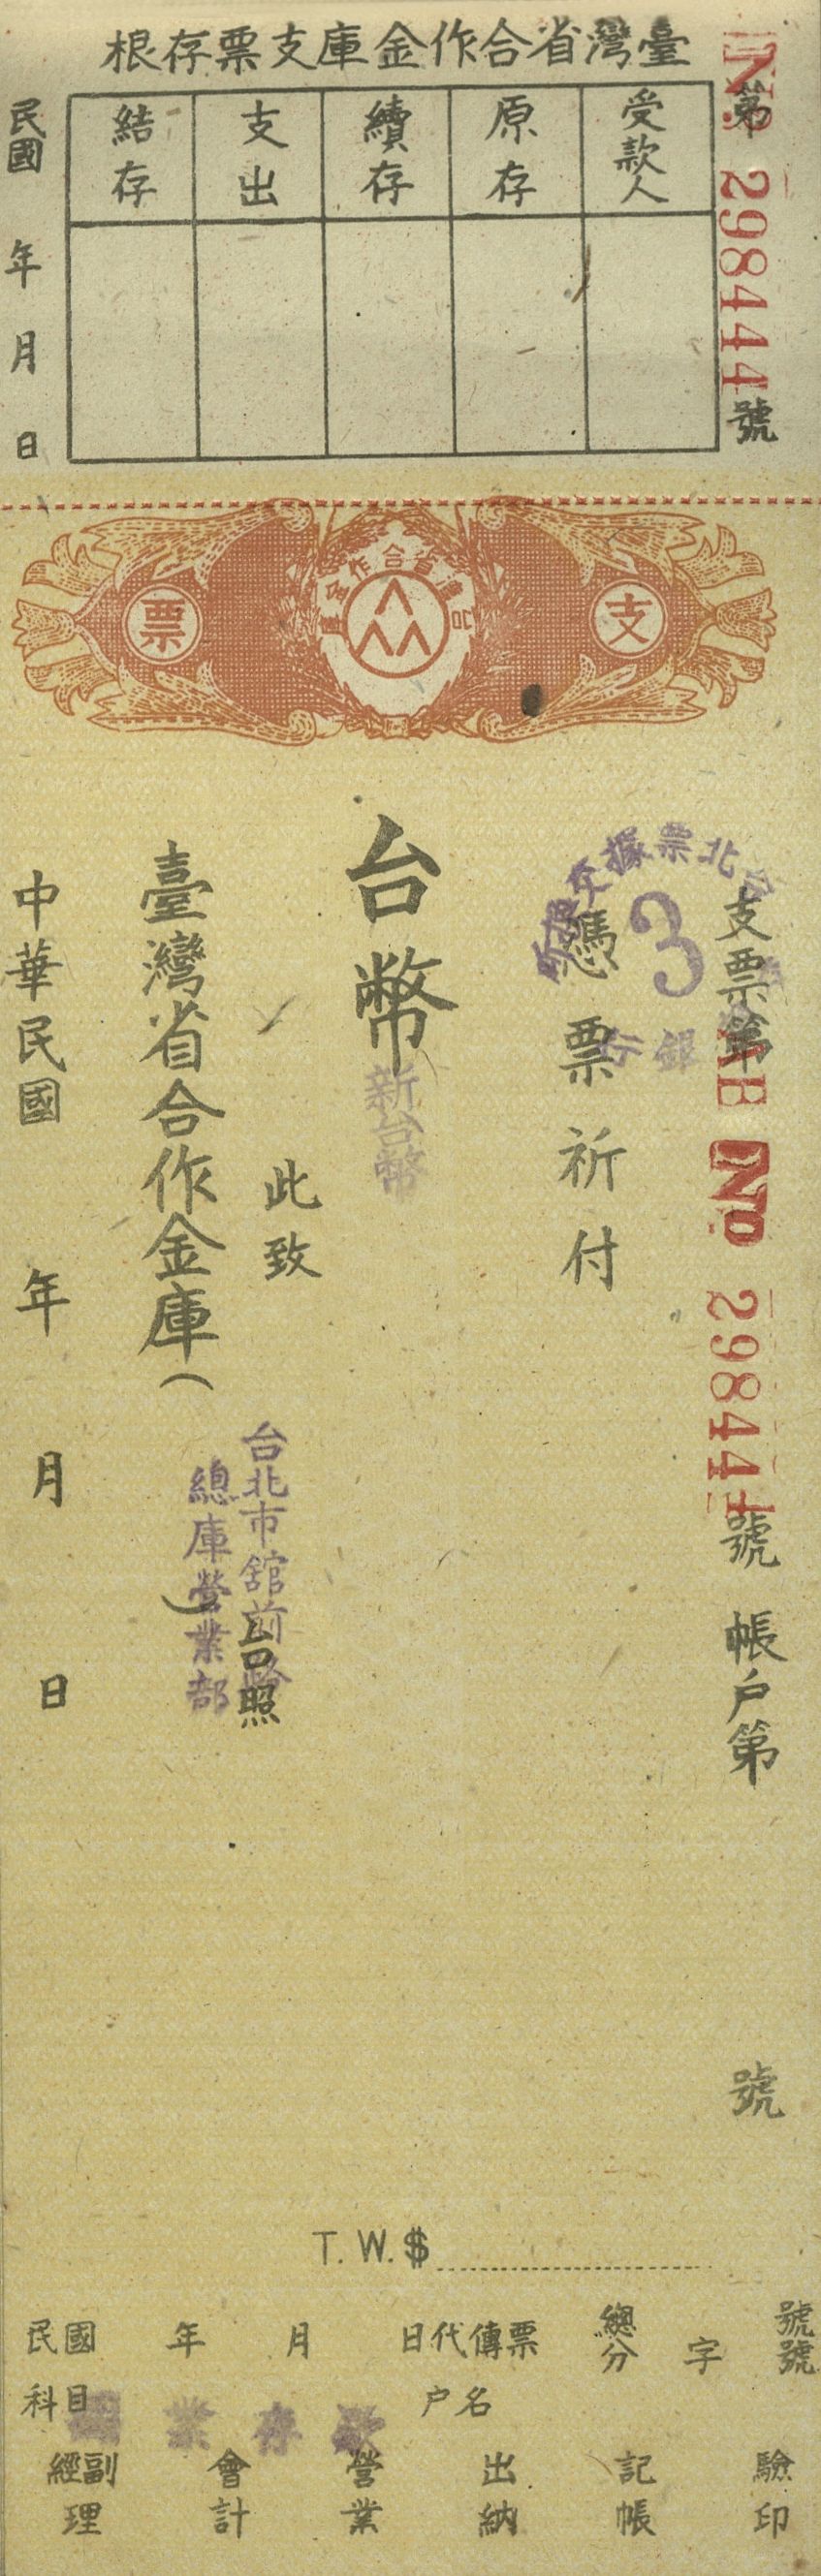 臺灣省合作金庫支票存根
第 No. 298444 號
受款人
原存
續存
支出
結存
民國 年 月 日
支
臺灣省合作金庫
票
支票第 AB No 298444 號 帳戶第 號
台北票據交換所
3
銀行
憑票祈付
台幣
新台幣
此致
台照
臺灣省合作金庫(
)
台北市舘前路
總庫營業部
中華民國 年 月 日
T. W. $
民國 年 月 日代傳票 總分 字 號號
科目 戶名
業存款
經副理 會計 營業 出納 記帳 驗印